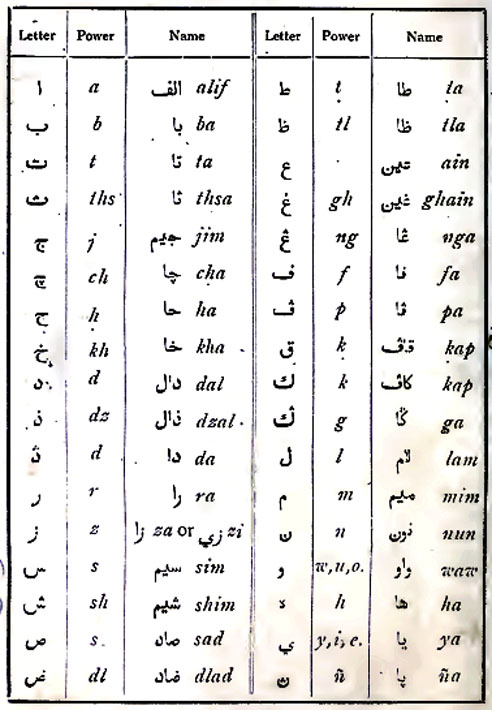 Letter Power Name Letter Power Name
ا a الف alif ط t طا ta
ب b با ba ظ tl ظا tla
ت t تا ta ع عين ain
ث ths ثا thsa غ gh غين ghain
ج j جيم jim ڠ ng ڠا nga
چ ch چا cha ف f فا fa
ح h حا ha ڤ p ڤا pa
خ kh خا kha ق k قاف kap
د d دال dal ك k كاف kap
ذ dz ذال dzal ڬ g ڬا ga
ڎ d دا da ل l لام lam
ر r را ra م m ميم mim
ز z زا za or زي zi ن n نون nun
س s سيم sim و w,u,o. واو waw
ش sh شيم shim ه h ها ha
ص s. صاد sad ي y,i,e. يا ya
ض dl ضاد dlad ن ñ ña